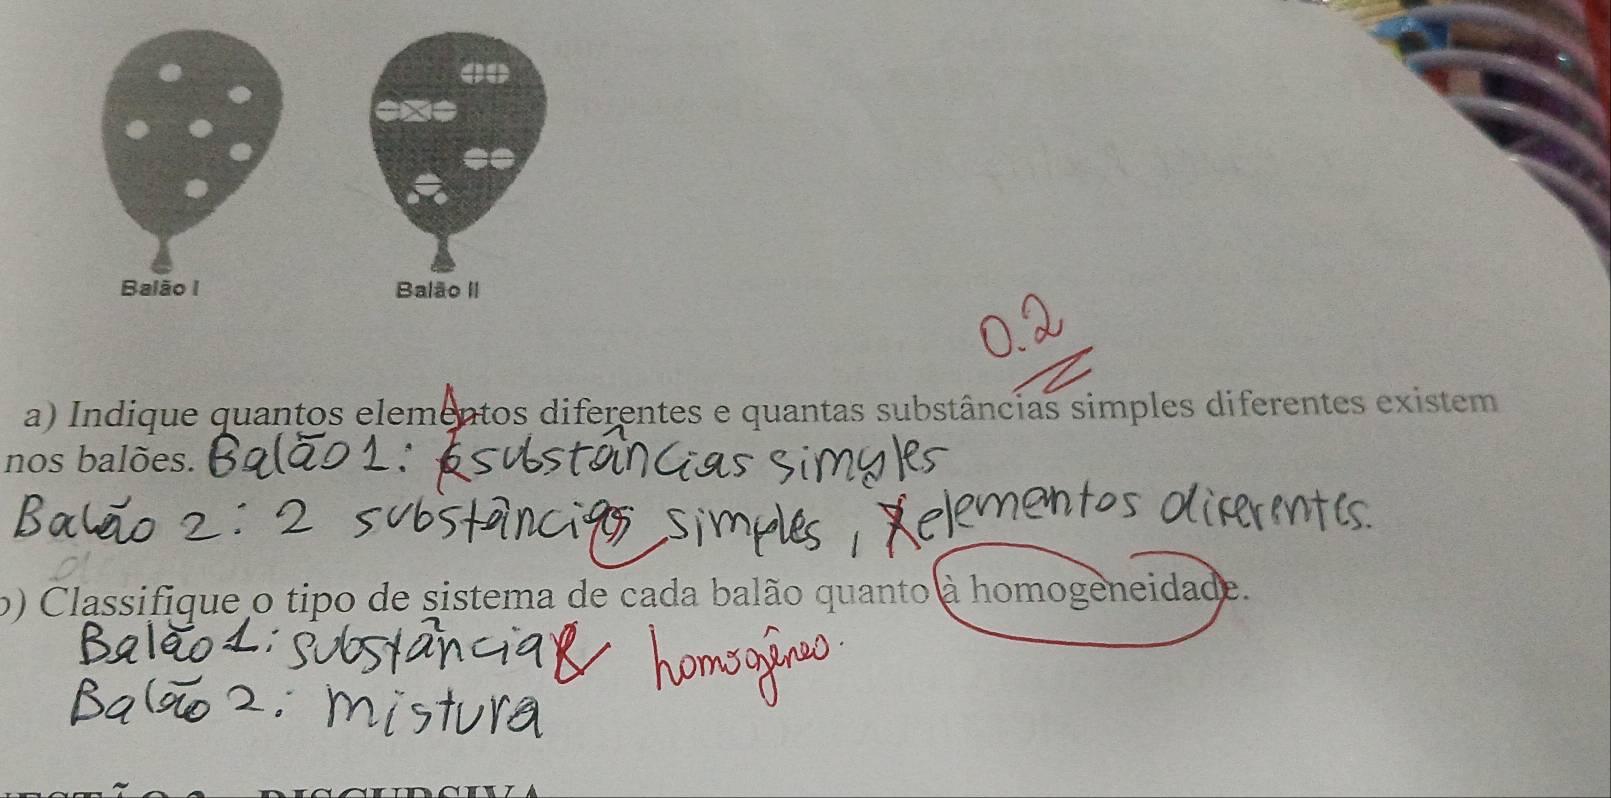 Balão I
Balão II
0.2
a) Indique quantos elementos diferentes e quantas substâncias simples diferentes existem
nos balões. Balão 1: substâncias simples
Balão 2: 2 substâncias simples, elementos diferentes.
b) Classifique o tipo de sistema de cada balão quanto à homogeneidade.
Balão 1: substância homogêneo.
Balão 2: mistura